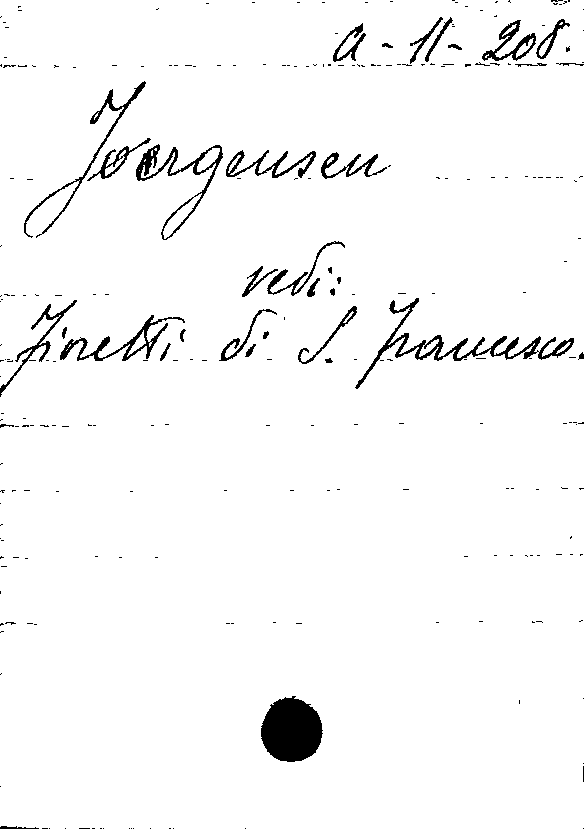 A-11-208.
Joergensen
vedi:
Fioretti di S. Francesco.